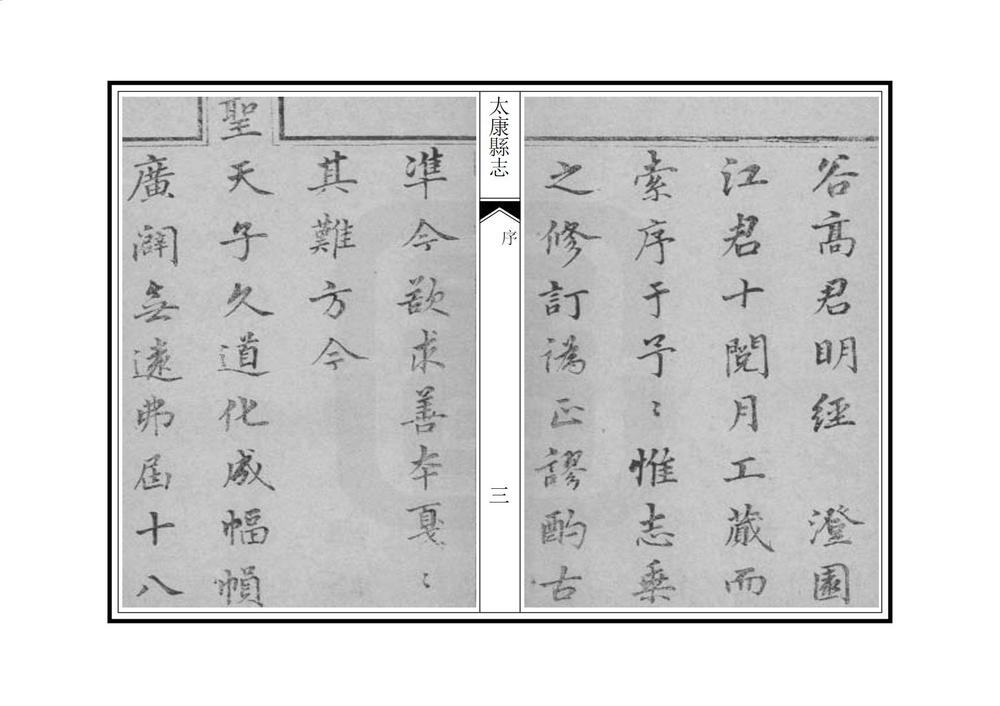 谷高君明經　澄園
江君十閱月工蕆而
索序于予〻惟志乗
之修訂譌正謬酌古
太康縣志
序
三
準今欲求善本戛〻
其難方今
聖
天子久道化成幅幀
廣闢無遠弗屆十八